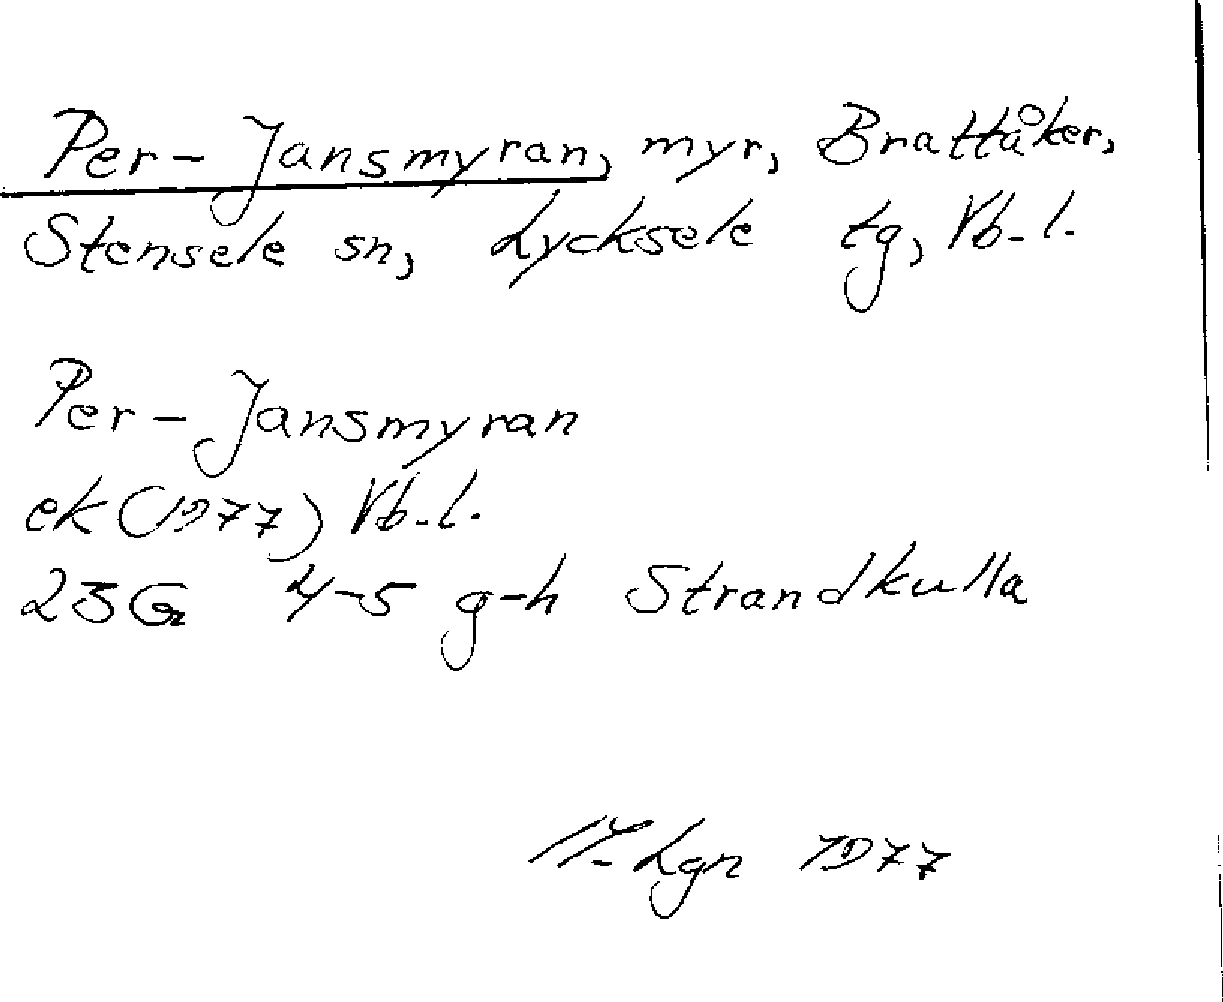 Per-Jansmyran, myr, Brattåker,
Stensele sn, Lycksele tg, Vb. l.
Per-Jansmyran
ek (1977) Vb. l.
23G 4-5 g-h Strandkulla
Lgn 1977